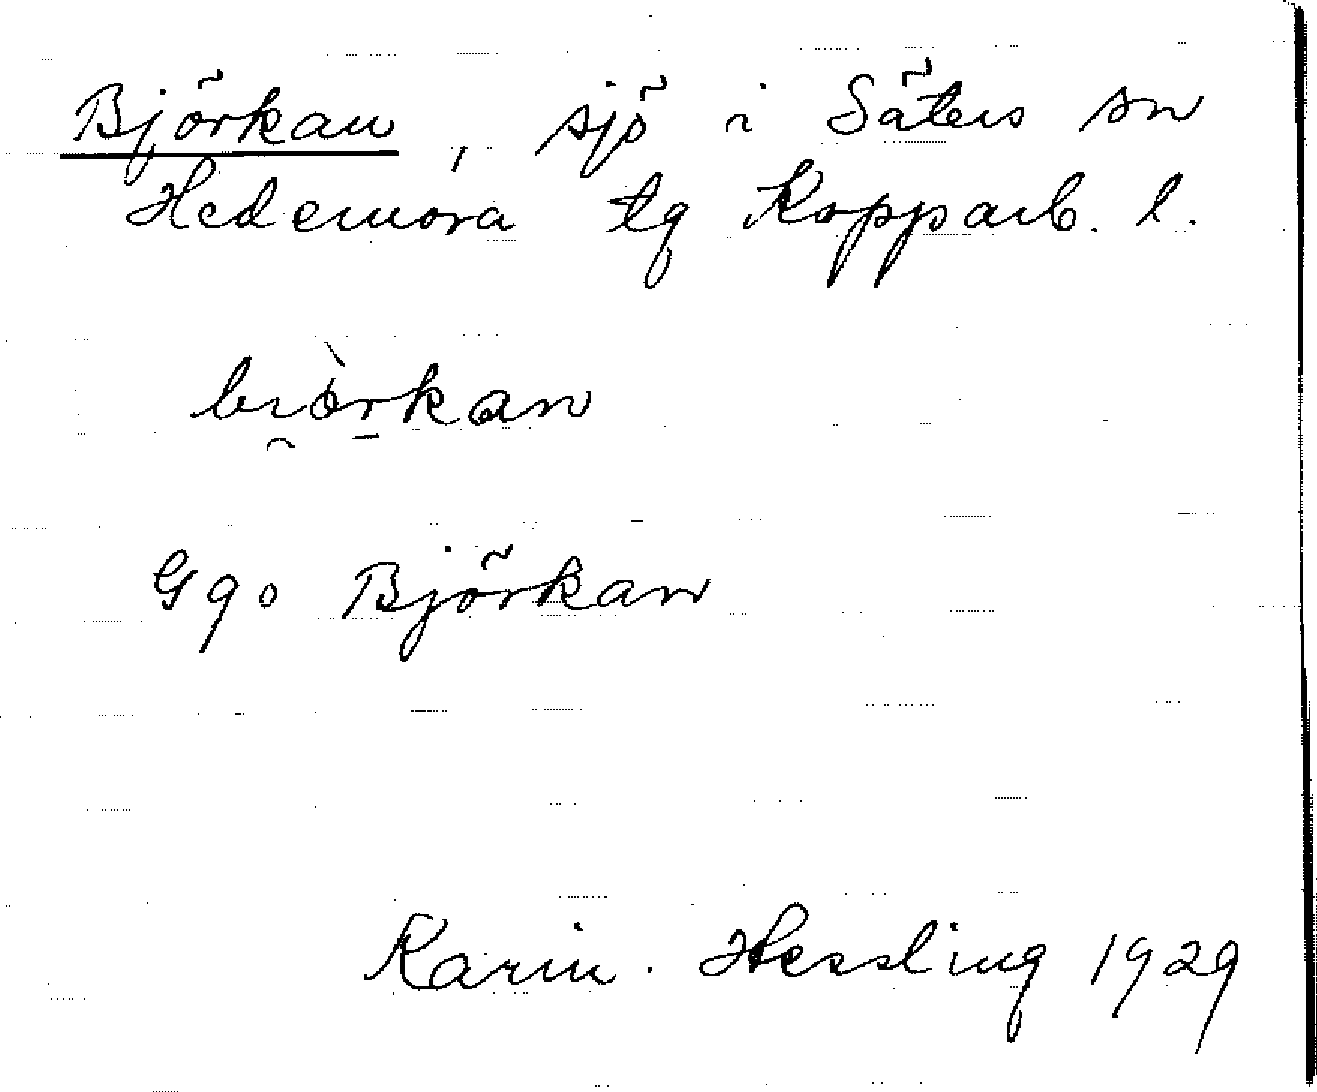 Björkan, sjö i Säters sn
Hedemora tg Kopparb. l.
bi̯ò̱rkan
Ggo Björkan
Karin. Hessling 1929